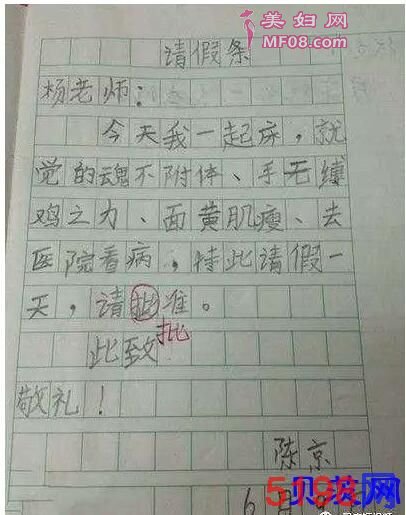 美妇网
MF08.com
请假条
杨老师:
今天我一起床,就
觉的魂不附体、手无缚
鸡之力、面黄肌瘦、去
医院看病,特此请假一
天,请批准。
批
此致
敬礼!
陈京
6月